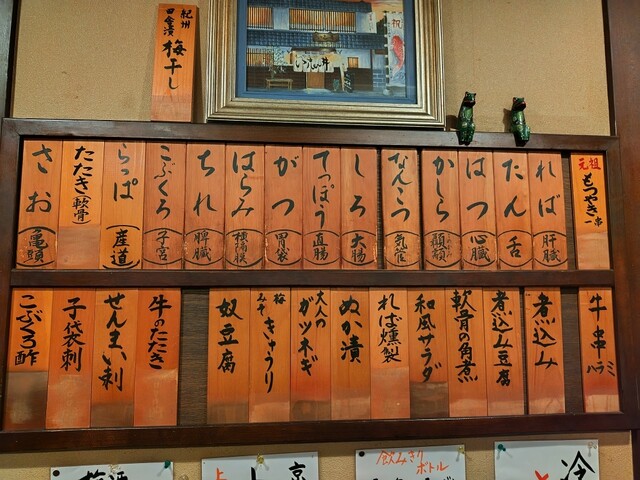 紀州
田舎漬
梅干し
祝
元祖
もつやき
一串
れば(肝臓)
たん(舌)
はつ(心臓)
かしら
なんこつ(気管)
しろ(大腸)
てっぽう(直腸)
がつ(胃袋)
はらみ(横隔膜)
ちれ(脾臓)
こぶくろ(子宮)
らっぱ(産道)
たたき(軟骨)
さお(亀頭)
牛串ハラミ
煮込み
煮込み豆腐
軟骨の角煮
和風サラダ
れば燻製
ぬか漬
大人の
ガツネギ
梅みそ
きゅうり
奴豆腐
牛のたたき
せんまい刺
子袋刺
こぶくろ酢
冷
飲みきり
ボトル
京
上
梅酒